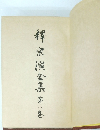 釋宗演全集第八卷